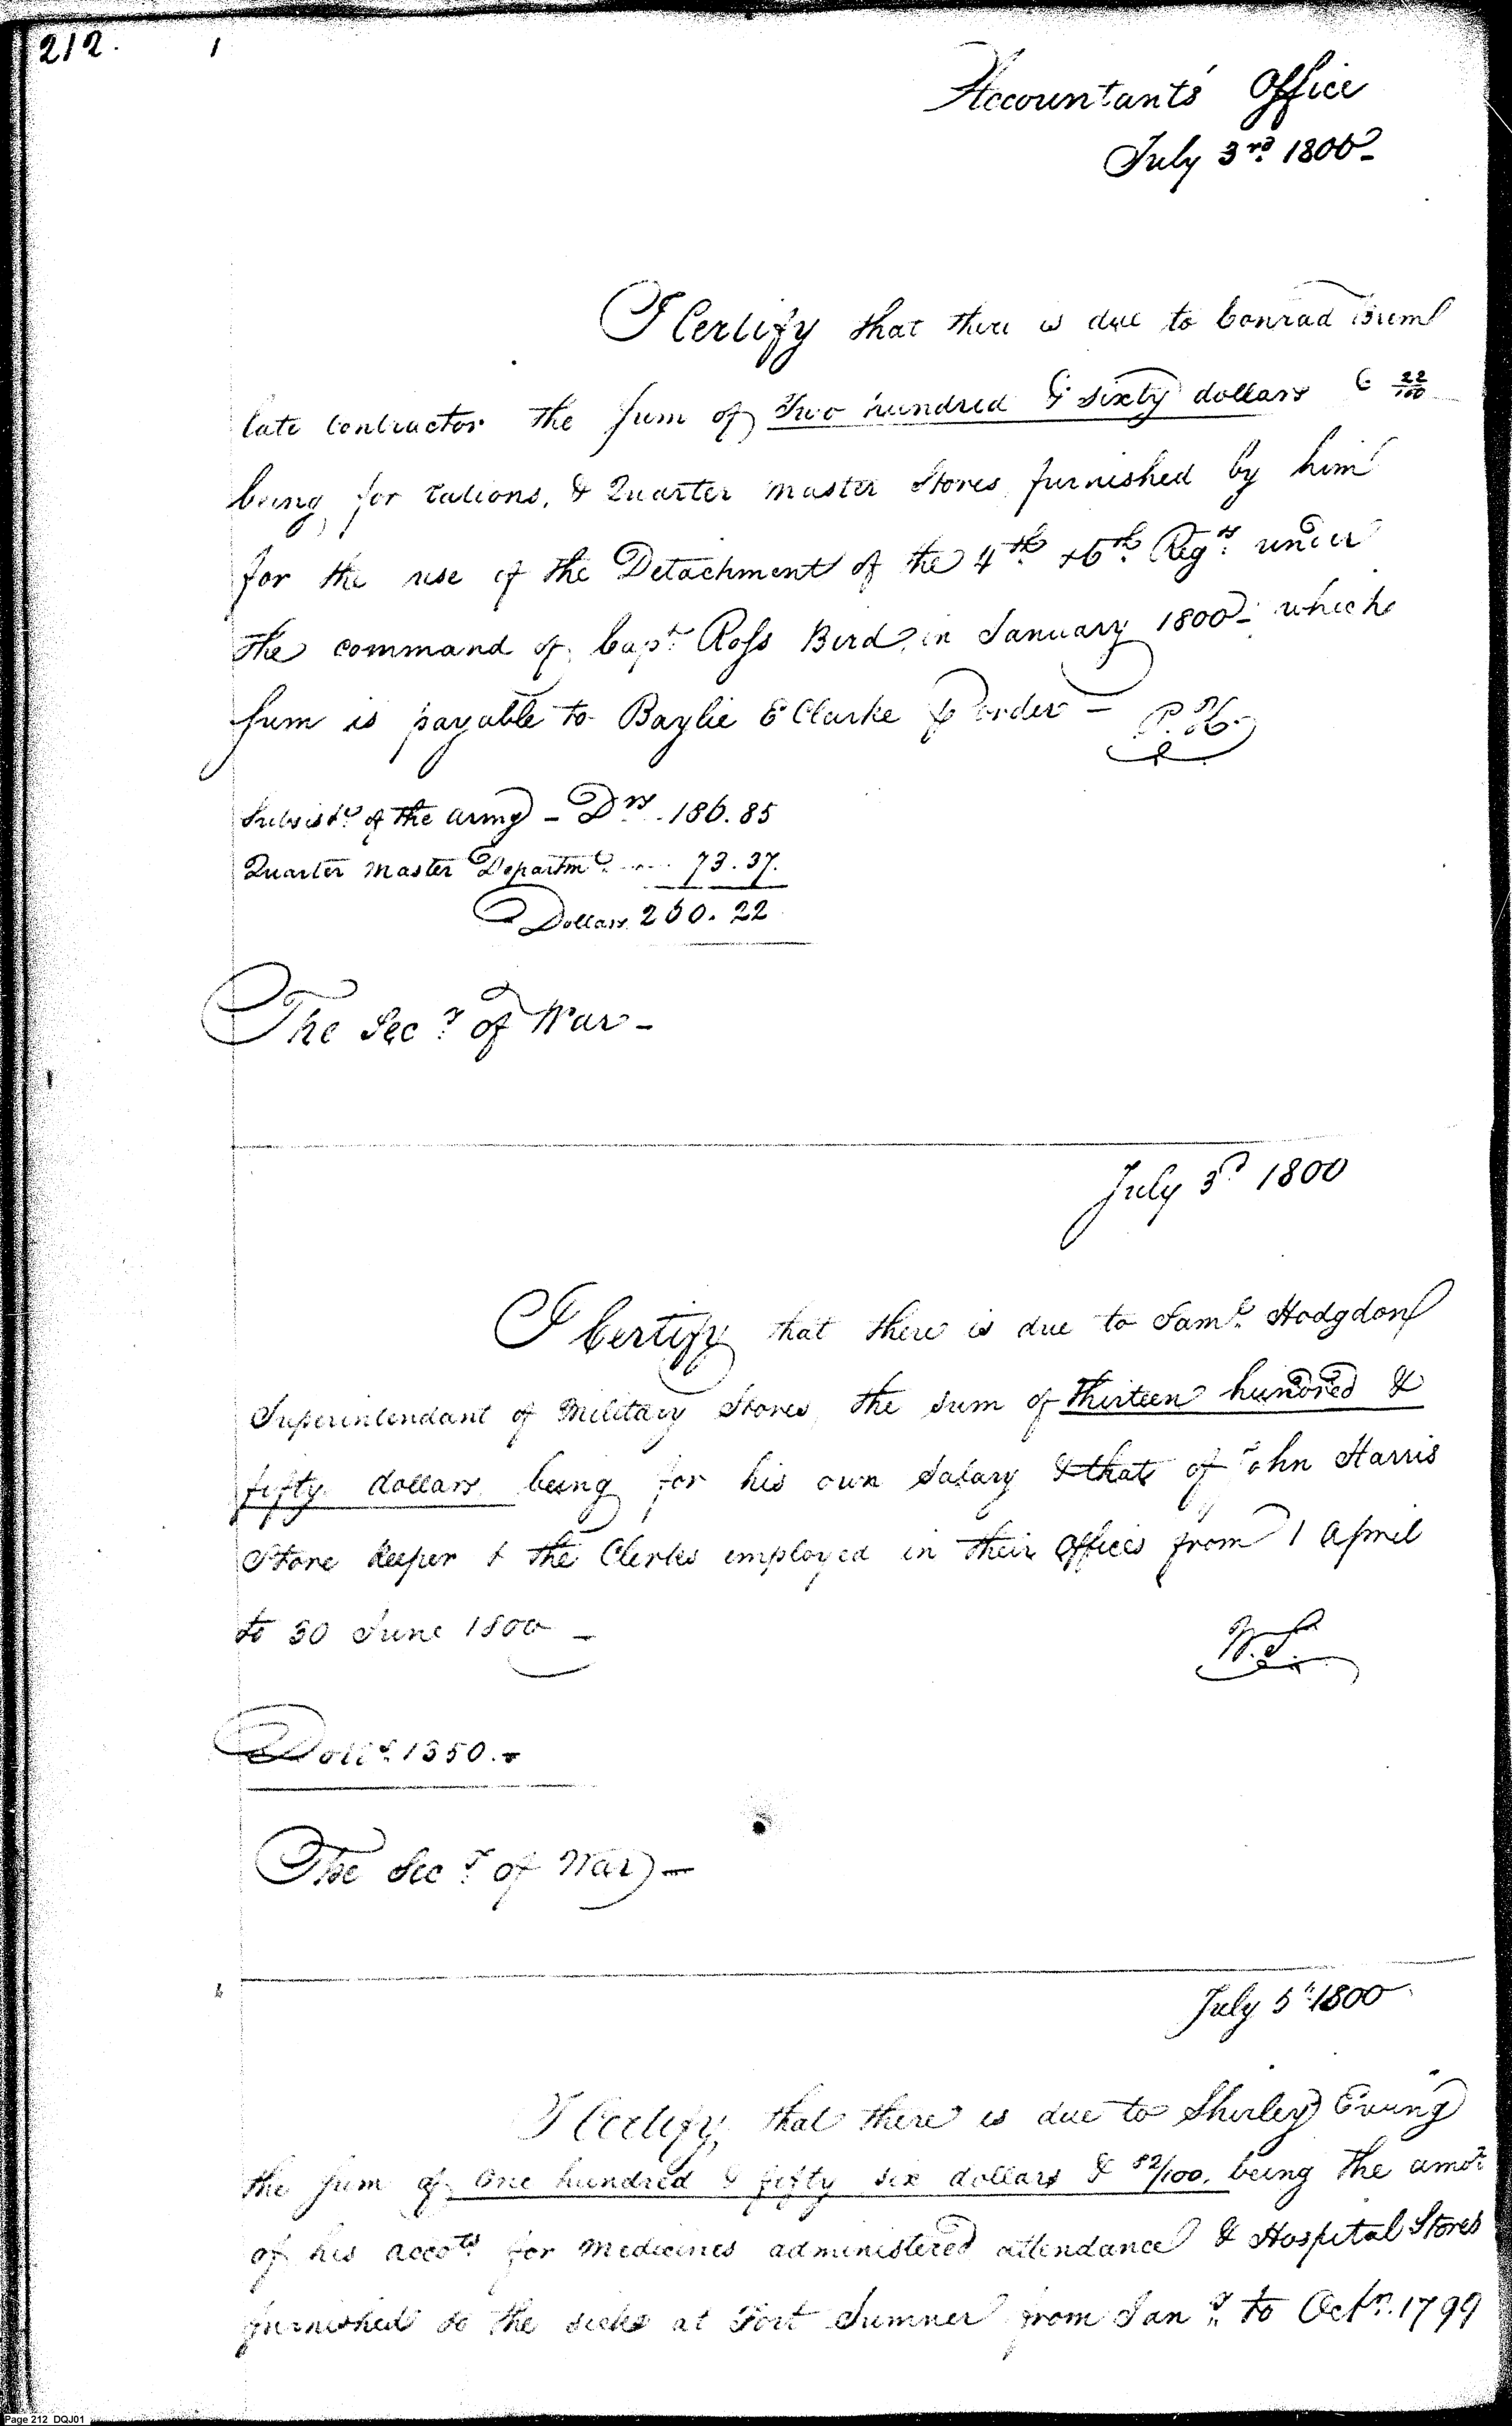 212.
Accountants' Office
July 3rd. 1800-
I Certify that there is due to Conrad
late contractor the sum of Two hundred & sixty dollars & 22/100
being for rations, & Quarter master Stores furnished by him
for the use of the Detachment of the 4th. & 6th. Regts. under
the command of Capt. Ross Bird, in January 1800- which
sum is payable to Baylie E Clarke or order - P. H.
Subsistce. of the army - Drs. 186.85
Quarter Master Departmt. 73.37.
Dollars 260.22
The Secy. of War -
July 3d. 1800
I Certify that there is due to Saml. Hodgdon
Superintendant of Military Stores, the sum of thirteen hundred &
fifty dollars being for his own salary & that of John Harris
Store keeper & the Clerks employed in their offices from 1 April
to 30 June 1800 -
W.S.
Dolls. 1350.-
The Secy. of War -
July 5th. 1800
I Certify that there is due to Shirley Erving
the sum of One hundred & fifty six dollars & 52/100. being the amot.
of his accots. for medicines administered attendance & Hospital Stores
furnished to the sick at Fort Sumner from Jany. to Octr. 1799
Page 212 DQJ01